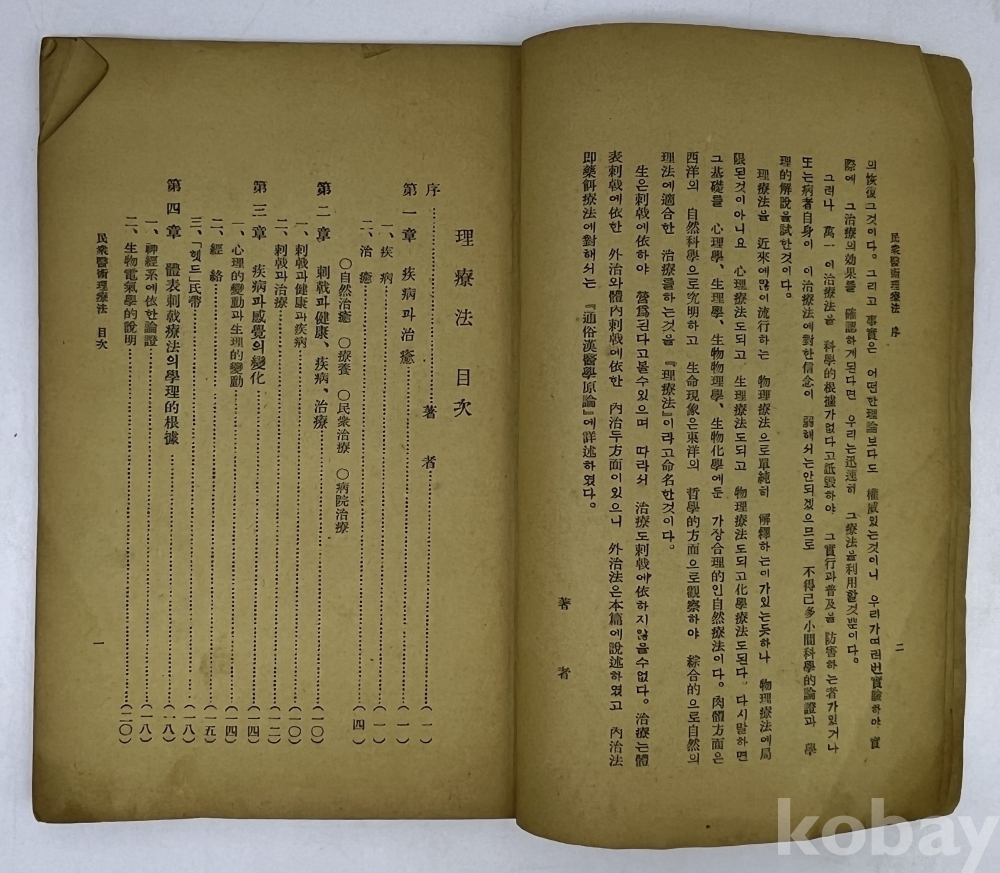 民衆醫術理療法 序
二
의 恢復그것이다。그리고 事實은 어떤한理論보다도 權威있는것이니 우리가여러번實驗하야 實
際에 그治療의効果를 確認하게된다면 우리는迅速히 그療法을利用할것뿐이다。
그러나 萬一 이治療法을 科學的根據가없다고詆毁하야 그實行과普及을 防害하는者가있거나
또는病者自身이 이治療法에對한信念이 弱해서는안되겠으므로 不得已多小間科學的論證과 學
理的解說을試한것이다。
理療法을 近來에많이流行하는 物理療法으로單純히 解釋하는이가있는듯하나 物理療法에局
限된것이아니요 心理療法도되고 生理療法도되고 物理療法도되고化學療法도된다。다시말하면
그基礎를 心理學、生理學、生物物理學、生物化學에둔 가장合理的인自然療法이다。肉體方面은
西洋의 自然科學으로究明하고 生命現象은東洋의 哲學的方面으로觀察하야 綜合的으로自然의
理法에適合한 治療를하는것을 『理療法』이라고命名한것이다。
生은刺戟에依하야 營爲된다고볼수있으며 따라서 治療도刺戟에依하지않을수없다。治療는體
表刺戟에依한 外治와體內刺戟에依한 內治두方面이있으니 外治法은本篇에說述하였고 內治法
即藥餌療法에對해서는 『通俗漢醫學原論』에詳述하였다。
著者
理療法 目次
序……著者……(一)
第一章 疾病과治癒……(一)
一、疾病……(一)
二、治癒……(四)
○自然治癒 ○療養 ○民衆治療 ○病院治療
第二章 刺戟과健康、疾病、治療……(一〇)
一、刺戟과健康과疾病……(一〇)
二、刺戟과治療……(一二)
第三章 疾病과感覺의變化……(一四)
一、心理的變動과生理的變動……(一四)
二、經絡……(一五)
三、「헫드」氏帶……(一八)
第四章 體表刺戟療法의學理的根據……(一八)
一、神經系에依한論證……(一八)
二、生物電氣學的說明……(二〇)
民衆醫術理療法 目次
一
kobay